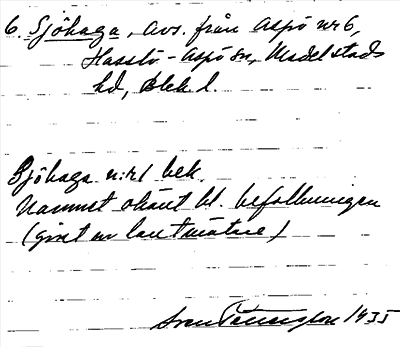 6. Sjöhaga, avs. från Aspö nr 6,
Hasslö-Aspö sn, Medelstads
hd, Blek. l.
Sjöhaga n:r 1 bek.
Namnet okänt bl. befolkningen
(givet av lantmätare)
Sven 1935